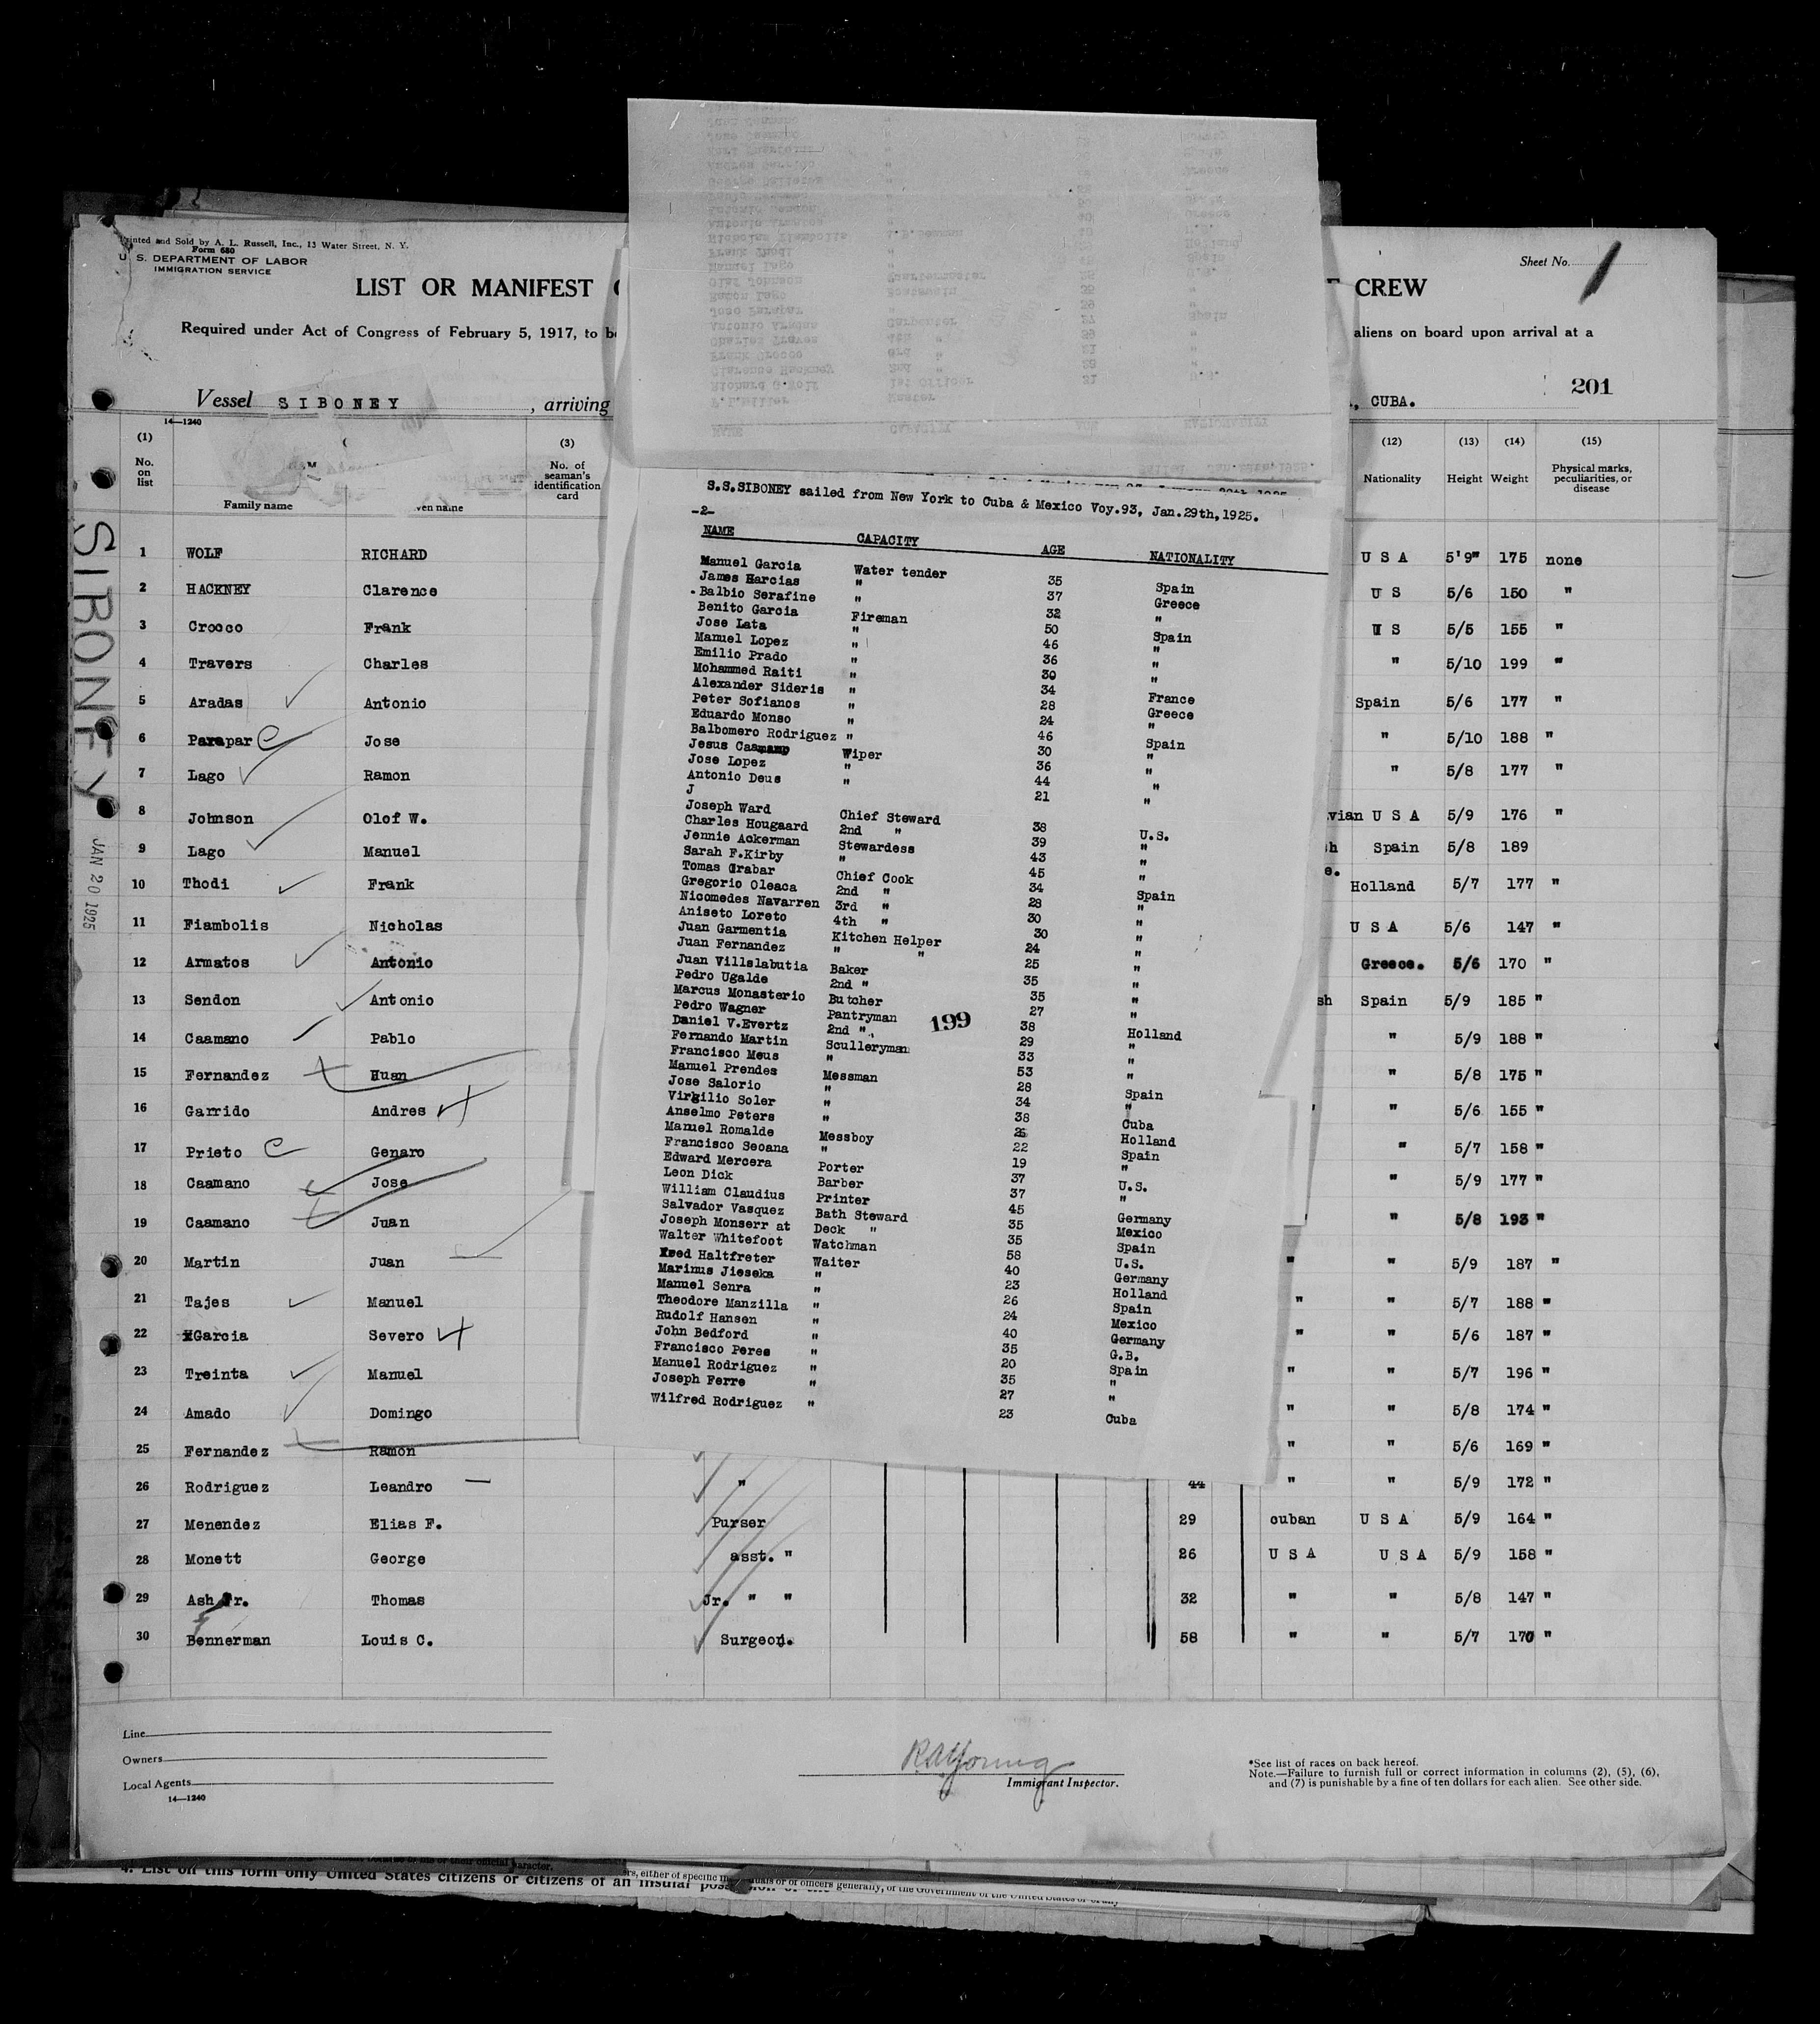 Printed and Sold by A. L. Russell, Inc., 13 Water Street, N. Y.
Form 680
U. S. DEPARTMENT OF LABOR
IMMIGRATION SERVICE
Sheet No. 1
LIST OR MANIFEST CREW
Required under Act of Congress of February 5, 1917, to aliens on board upon arrival at a
201
Vessel SIBONEY, arriving CUBA.
14—1240
(1) (3) (12) (13) (14) (15)
No. on list Family name No. of seaman's identification card Nationality Height Weight Physical marks, peculiarities, or disease
SIBONEY
JAN 20 1925
1 WOLF RICHARD U S A 5'9" 175 none
2 HACKNEY Clarence U S 5/6 150 "
3 Crocco Frank U S 5/5 155 "
4 Travers Charles " 5/10 199 "
5 Aradas Antonio Spain 5/6 177 "
6 Parapar C Jose " 5/10 188 "
7 Lago Ramon " 5/8 177 "
8 Johnson Olof W. U S A 5/9 176 "
9 Lago Manuel Spain 5/8 189
10 Thodi Frank Holland 5/7 177 "
11 Fiambolis Nicholas U S A 5/6 147 "
12 Armatos Antonio Greece. 5/6 170 "
13 Sendon Antonio Spain 5/9 185 "
14 Caamano Pablo " 5/9 188 "
15 Fernandez Huan " 5/8 175 "
16 Garrido Andres " 5/6 155 "
17 Prieto C Genaro " 5/7 158 "
18 Caamano Jose " 5/9 177 "
19 Caamano Juan " 5/8 193 "
20 Martin Juan " " 5/9 187 "
21 Tajes Manuel " " 5/7 188 "
22 Garcia Severo " " 5/6 187 "
23 Treinta Manuel " " 5/7 196 "
24 Amado Domingo " " 5/8 174 "
25 Fernandez Ramon " " 5/6 169 "
26 Rodriguez Leandro " 44 " " 5/9 172 "
27 Menendez Elias F. Purser 29 cuban U S A 5/9 164 "
28 Monett George asst. " 26 U S A U S A 5/9 158 "
29 Ash Jr. Thomas Jr. " " 32 " " 5/8 147 "
30 Bennerman Louis C. Surgeon. 58 " " 5/7 170 "
S.S.SIBONEY sailed from New York to Cuba & Mexico Voy.93, Jan.29th,1925.
-2-
NAME CAPACITY AGE NATIONALITY
Manuel Garcia Water tender 35 Spain
James Harcias " 37 Greece
Balbio Serafine " 32 "
Benito Garcia Fireman 50 Spain
Jose Lata " 46 "
Manuel Lopez " 36 "
Emilio Prado " 30 "
Mohammed Raiti " 34 France
Alexander Sideris " 28 Greece
Peter Sofianos " 24 "
Eduardo Monso " 46 Spain
Balbomero Rodriguez " 30 "
Jesus Caamano Wiper 36 "
Jose Lopez " 44 "
Antonio Deus " 21 "
J
Joseph Ward Chief Steward 38 U.S.
Charles Hougaard 2nd " 39 "
Jennie Ackerman Stewardess 43 "
Sarah F.Kirby " 45 "
Tomas Grabar Chief Cook 34 Spain
Gregorio Oleaca 2nd " 28 "
Nicomedes Navarren 3rd " 30 "
Aniseto Loreto 4th " 30 "
Juan Garmentia Kitchen Helper 24 "
Juan Fernandez " " 25 "
Juan Villslabutia Baker 35 "
Pedro Ugalde 2nd " 35 "
Marcus Monasterio Butcher 27 "
Pedro Wagner Pantryman 38 Holland
Daniel V.Evertz 2nd " 29 "
199
Fernando Martin Sculleryman 33 "
Francisco Meus " 53 "
Manuel Prendes Messman 28 Spain
Jose Salorio " 34 "
Virgilio Soler " 38 Cuba
Anselmo Peters " 26 Holland
Manuel Romalde Messboy 22 Spain
Francisco Seoana " 19 "
Edward Mercera Porter 37 U.S.
Leon Dick Barber 37 "
William Claudius Printer 45 Germany
Salvador Vasquez Bath Steward 35 Mexico
Joseph Monserr at Deck " 35 Spain
Walter Whitefoot Watchman 58 U.S.
Fred Haltfreter Waiter 40 Germany
Marinus Jieseka " 23 Holland
Manuel Senra " 26 Spain
Theodore Manzilla " 24 Mexico
Rudolf Hansen " 40 Germany
John Bedford " 35 G.B.
Francisco Peres " 20 Spain
Manuel Rodriguez " 35 "
Joseph Ferre " 27 "
Wilfred Rodriguez " 23 Cuba
Line
Owners
Local Agents
14—1240
R A Young
Immigrant Inspector.
*See list of races on back hereof.
Note.—Failure to furnish full or correct information in columns (2), (5), (6),
and (7) is punishable by a fine of ten dollars for each alien. See other side.
4. List on this form only United States citizens or citizens of an insular